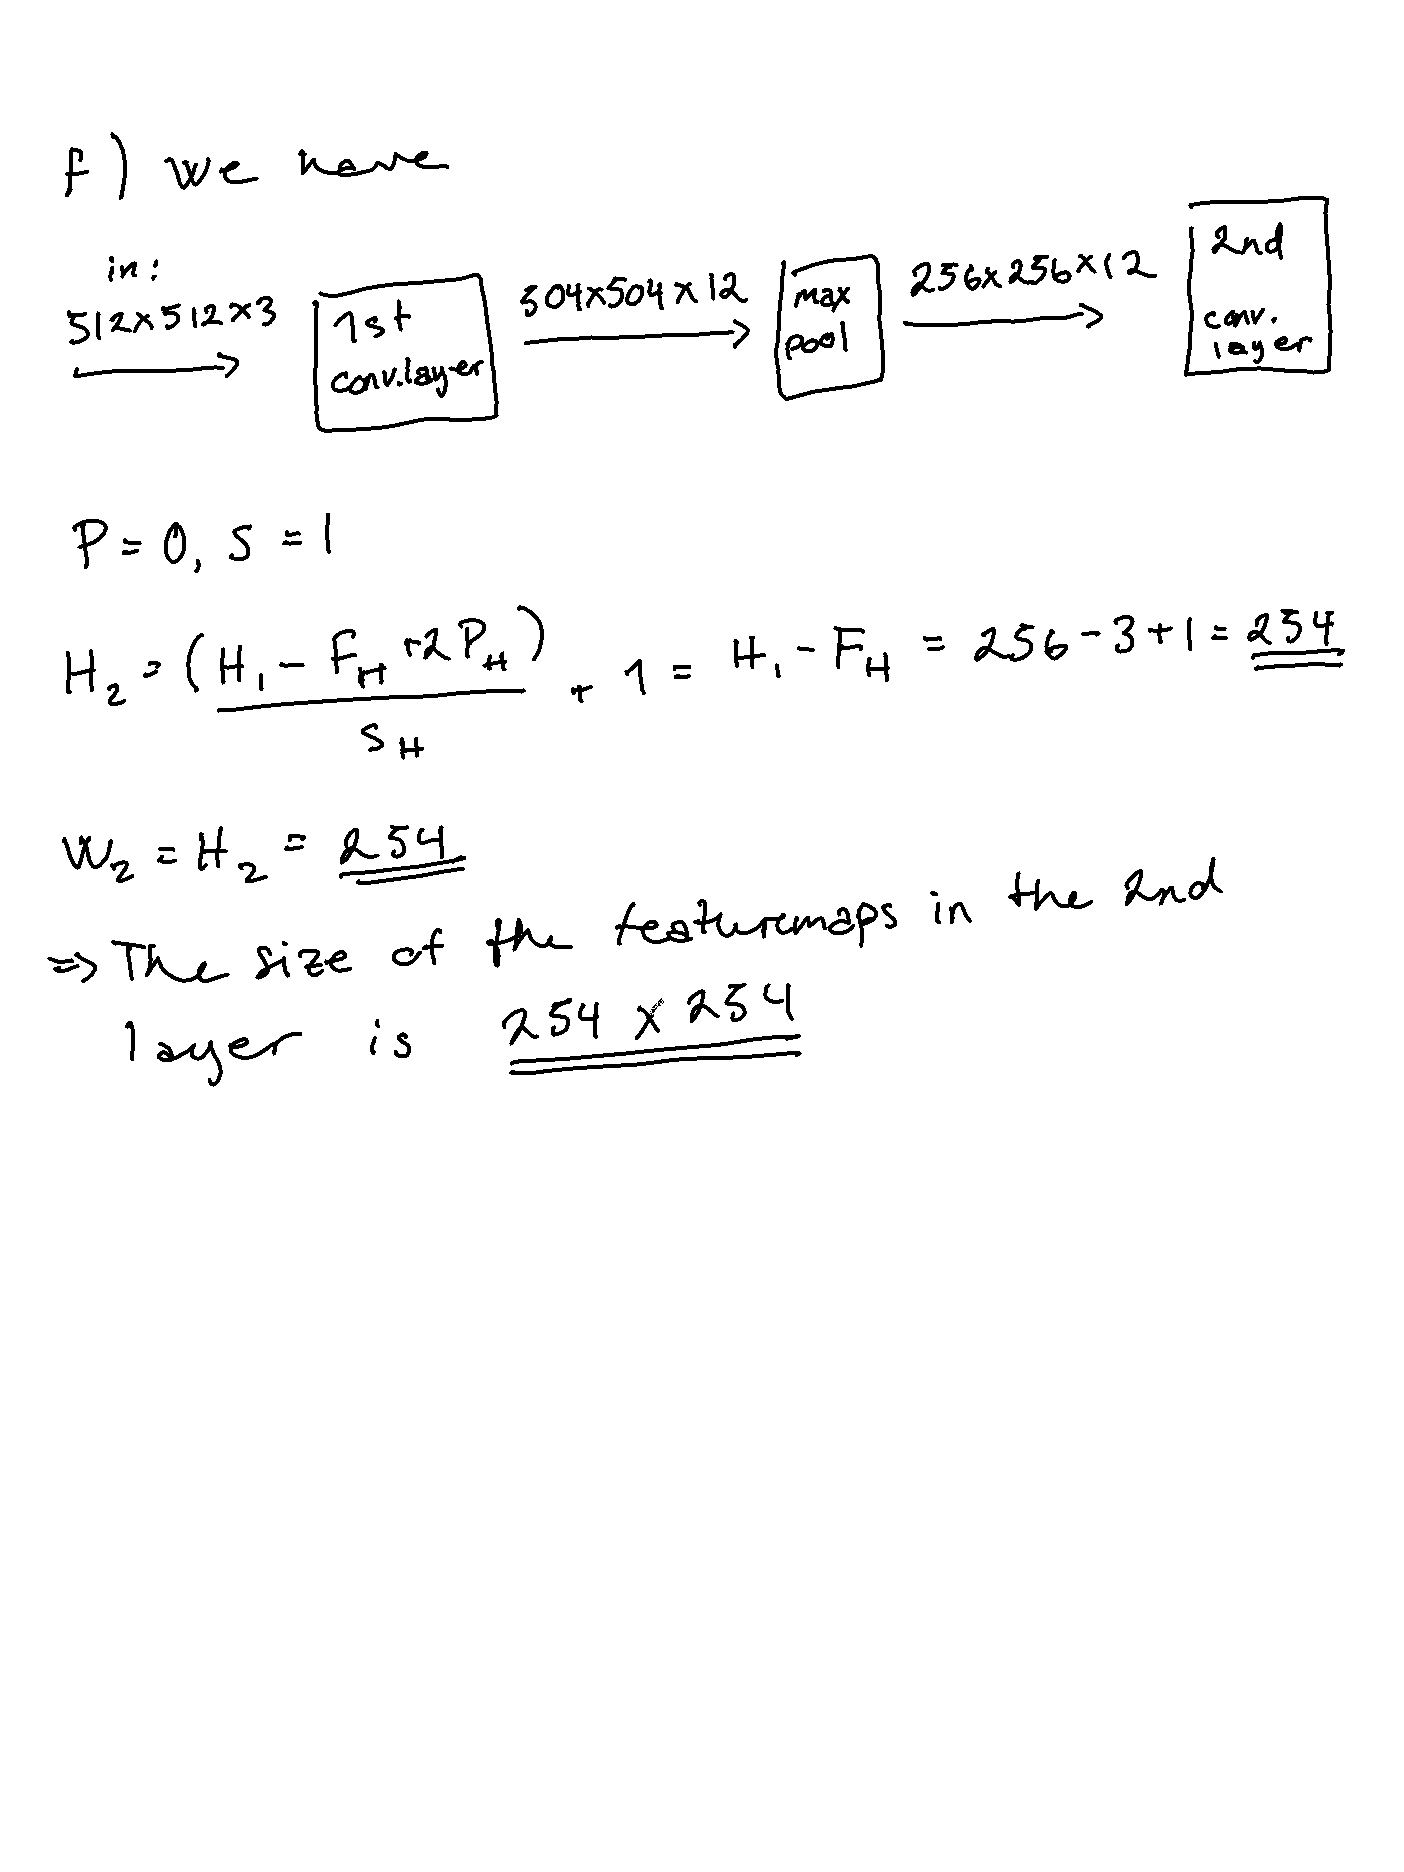 f) We have
in:
512x512x3
1st
conv.layer
504x504x12
max
pool
256x256x12
2nd
conv.
layer
P = 0, S = 1
H₂ = (H₁ - F_H + 2P_H) / S_H + 1 = H₁ - F_H = 256 - 3 + 1 = 254
W₂ = H₂ = 254
=> The size of the featuremaps in the 2nd
layer is 254 x 254